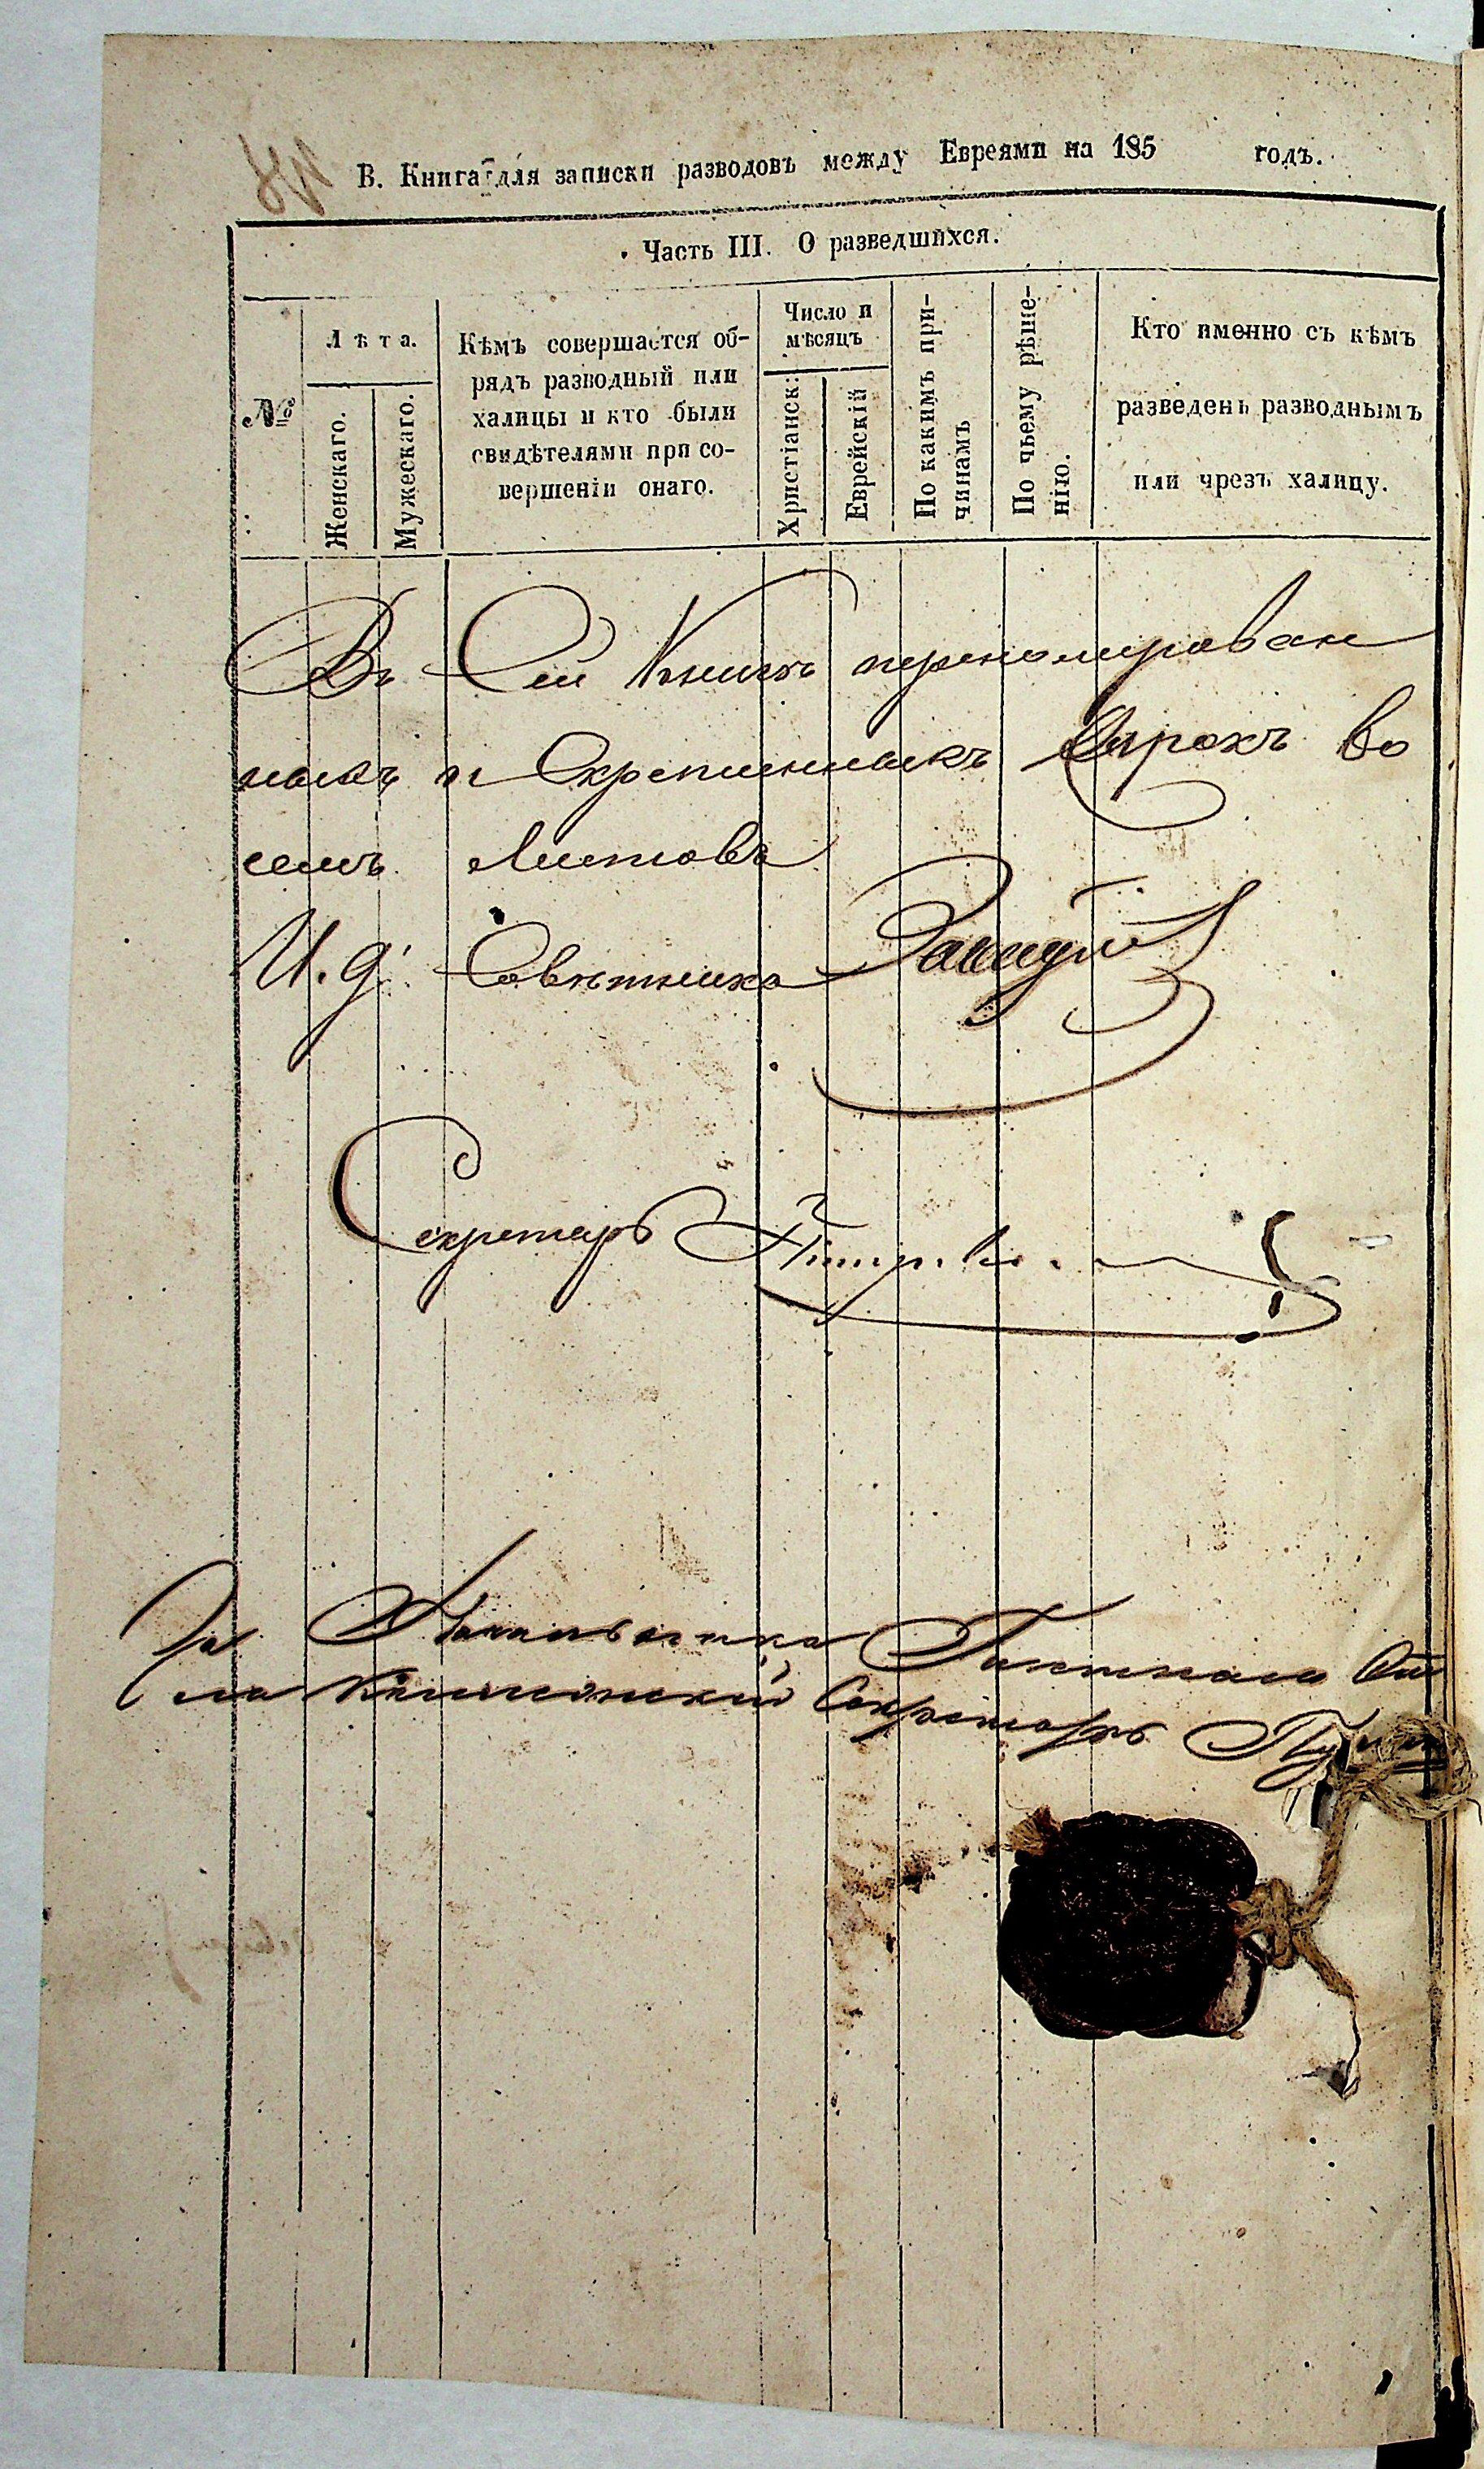 В. Книга для записки разводовъ между Евреями на 185 годъ.
Часть III. О разведшихся.
№
Лѣта.
Женскаго.
Мужескаго.
Кѣмъ совершается об-
рядъ разводный или
халицы и кто были
свидѣтелями при со-
вершеніи онаго.
Число и
мѣсяцъ
Христіанск:
Еврейскій
По какимъ при-
чинамъ
По чьему рѣше-
нію.
Кто именно съ кѣмъ
разведенъ разводнымъ
или чрезъ халицу.
Въ Сей Книгѣ переномерован
ныхъ и Скрепленныхъ Сорокъ во
семь Листовъ
И. д. Совѣтника
Секретарь
За
Секретарь